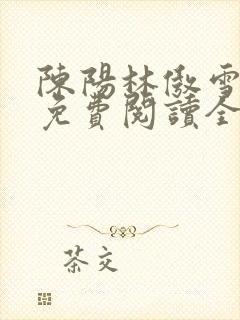 陳陽林傲雪
免費閱讀全
茶文